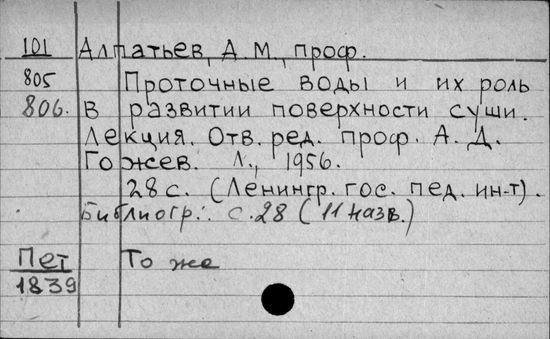 101 Алпатьев, А. М., проф.
805 Проточные воды и их роль
806. в развитии поверхности суши.
Лекция. Отв. ред. проф. А. Д.
Гожев. Л., 1956.
28 с. (Ленингр. гос. пед. ин-т).
Библиогр.: с. 28 (11 назв.)
Пет То же
1839